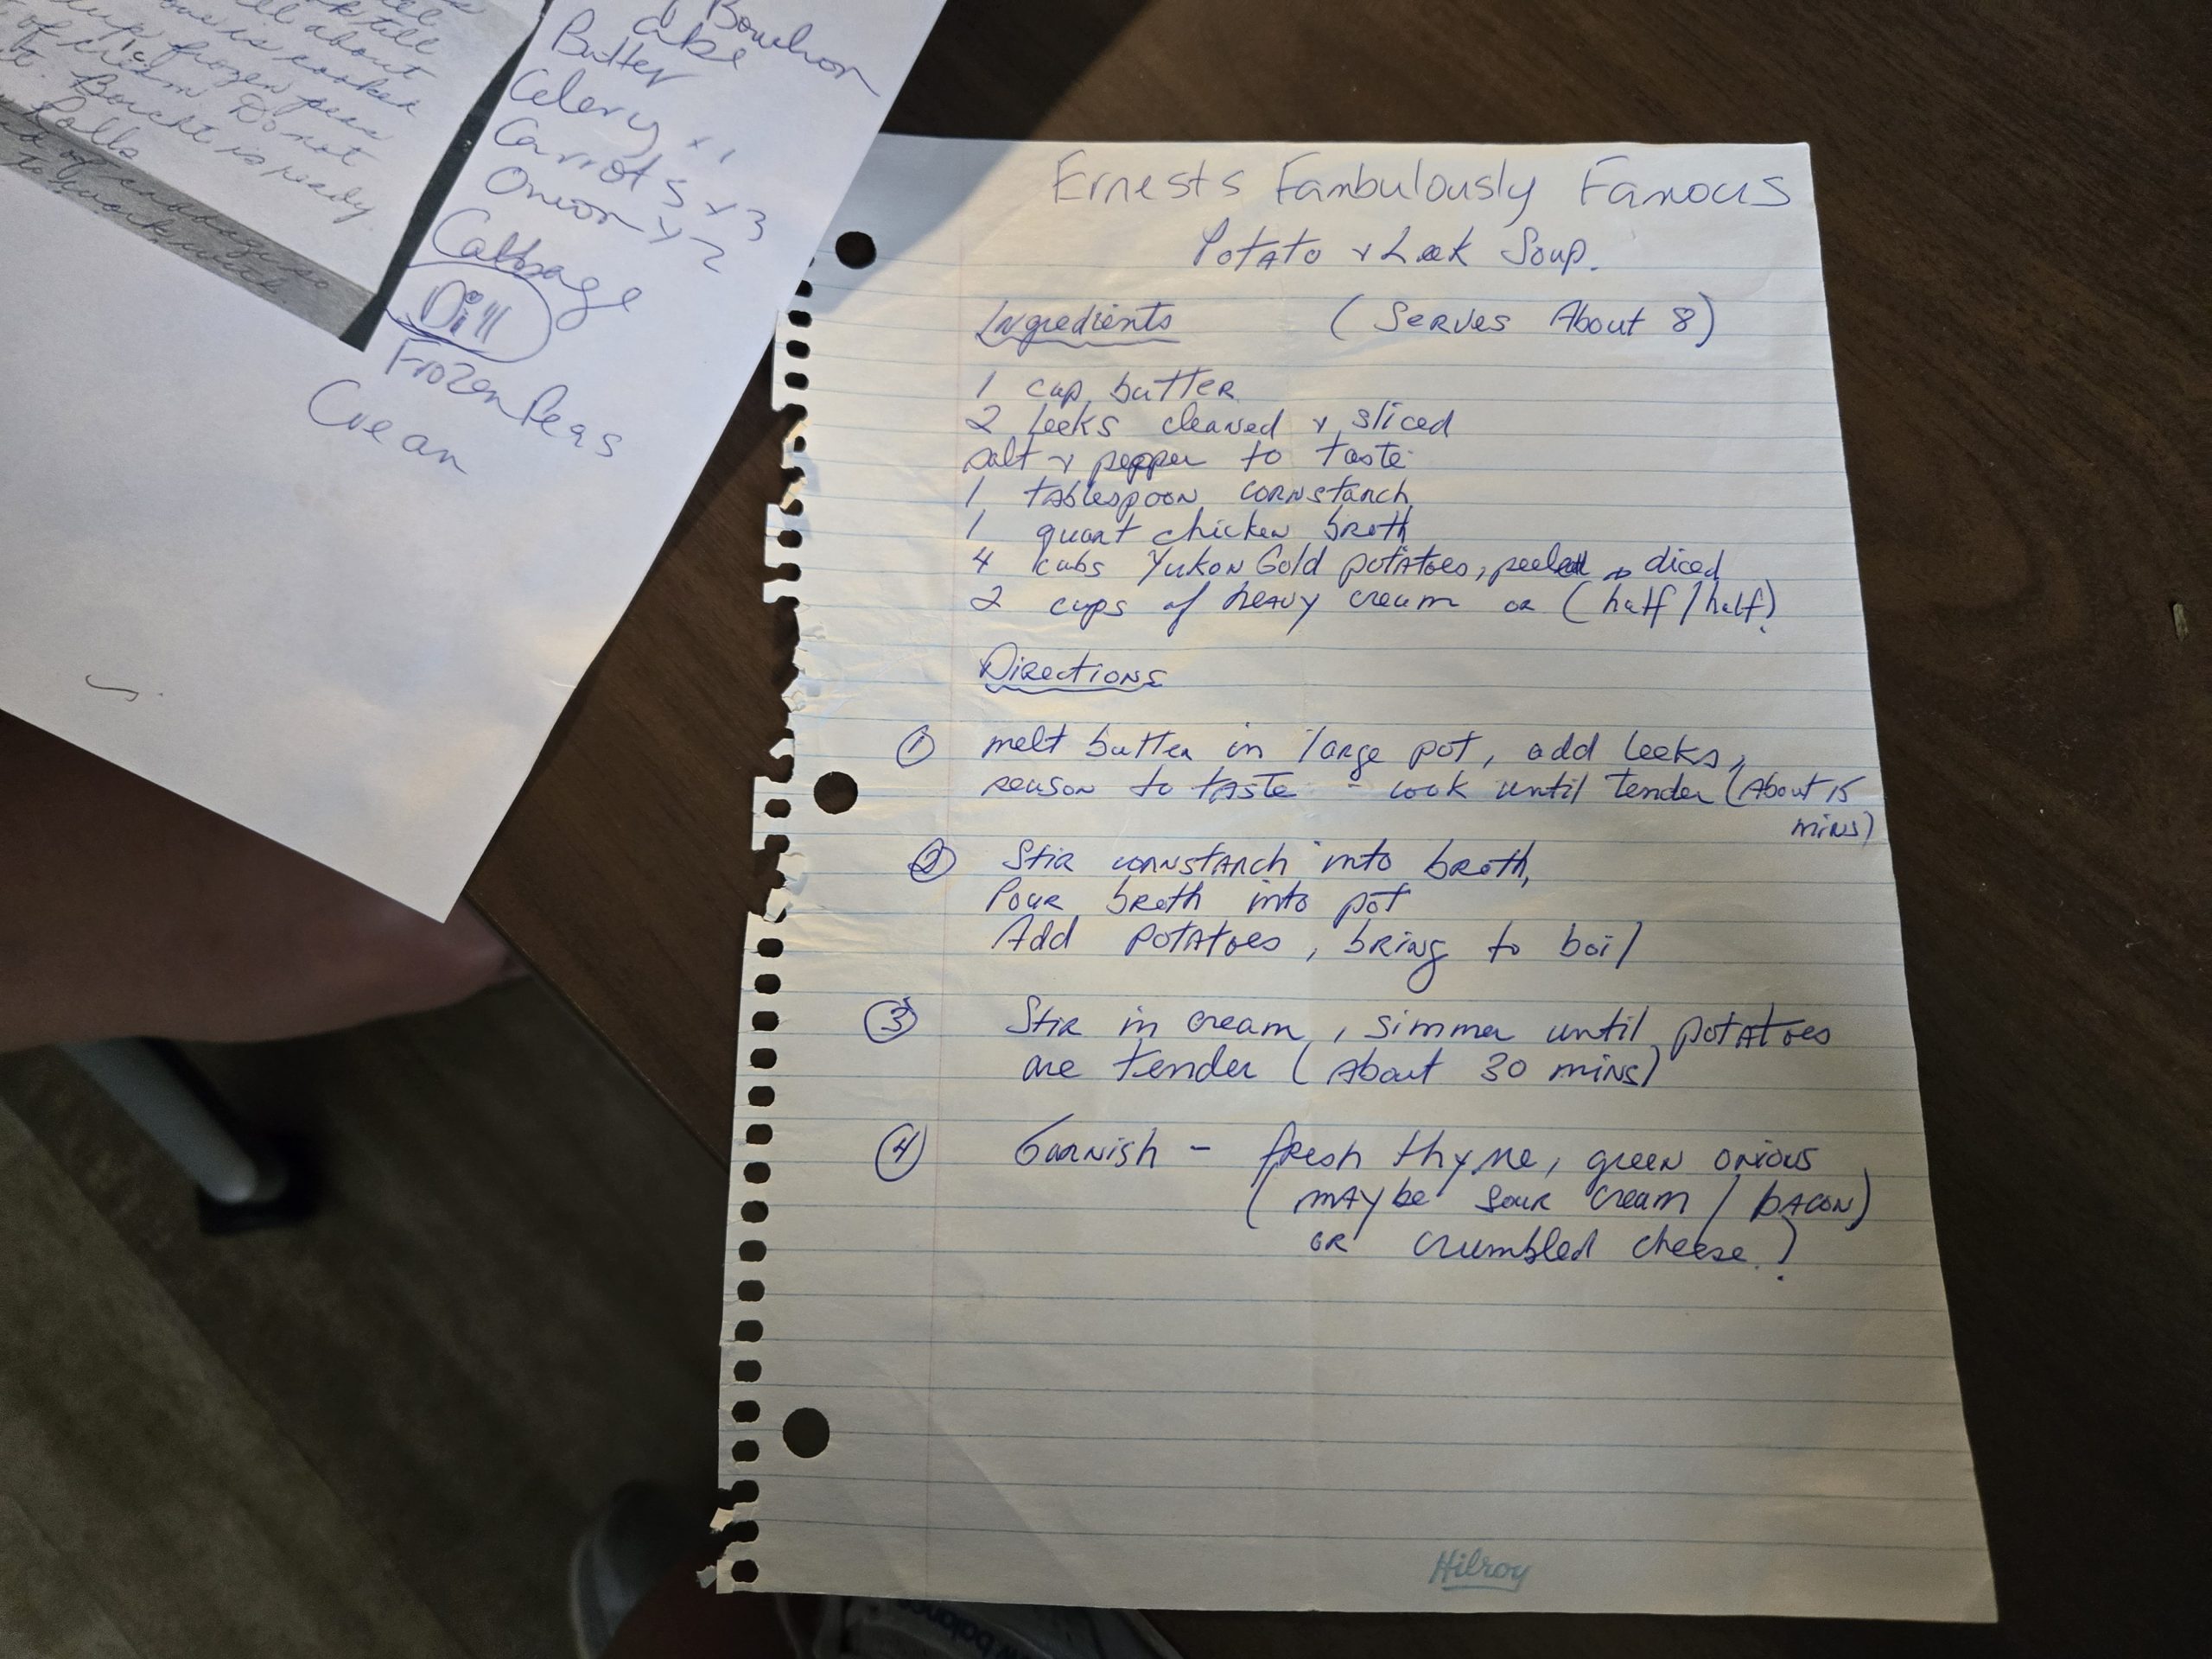 till
about
is cooked
frozen peas
of cream Do not
Borscht is ready
Rolls
of cabbage so
to work with.
Bouelron
Cube
Butter
Celery x 1
Carrots x 3
Onion x 2
Cabbage
Dill
Frozen Peas
Cream
Ernests Fambulously Famous
Potato & Leek Soup.
Ingredients (Serves About 8)
1 cup butter
2 leeks cleaned & sliced
salt & pepper to taste
1 tablespoon cornstarch
1 quart chicken broth
4 cubs Yukon Gold potatoes, peeled & diced
2 cups of heavy cream or (half/half).
Directions
① melt butter in large pot, add leeks,
season to taste - cook until tender (About 15
mins)
② Stir cornstarch into broth,
Pour broth into pot
Add potatoes, bring to boil
③ Stir in cream, simmer until potatoes
are tender (About 30 mins)
④ Garnish - fresh thyme, green onions
(maybe sour cream / bacon)
or crumbled cheese.)
Hilroy
balance